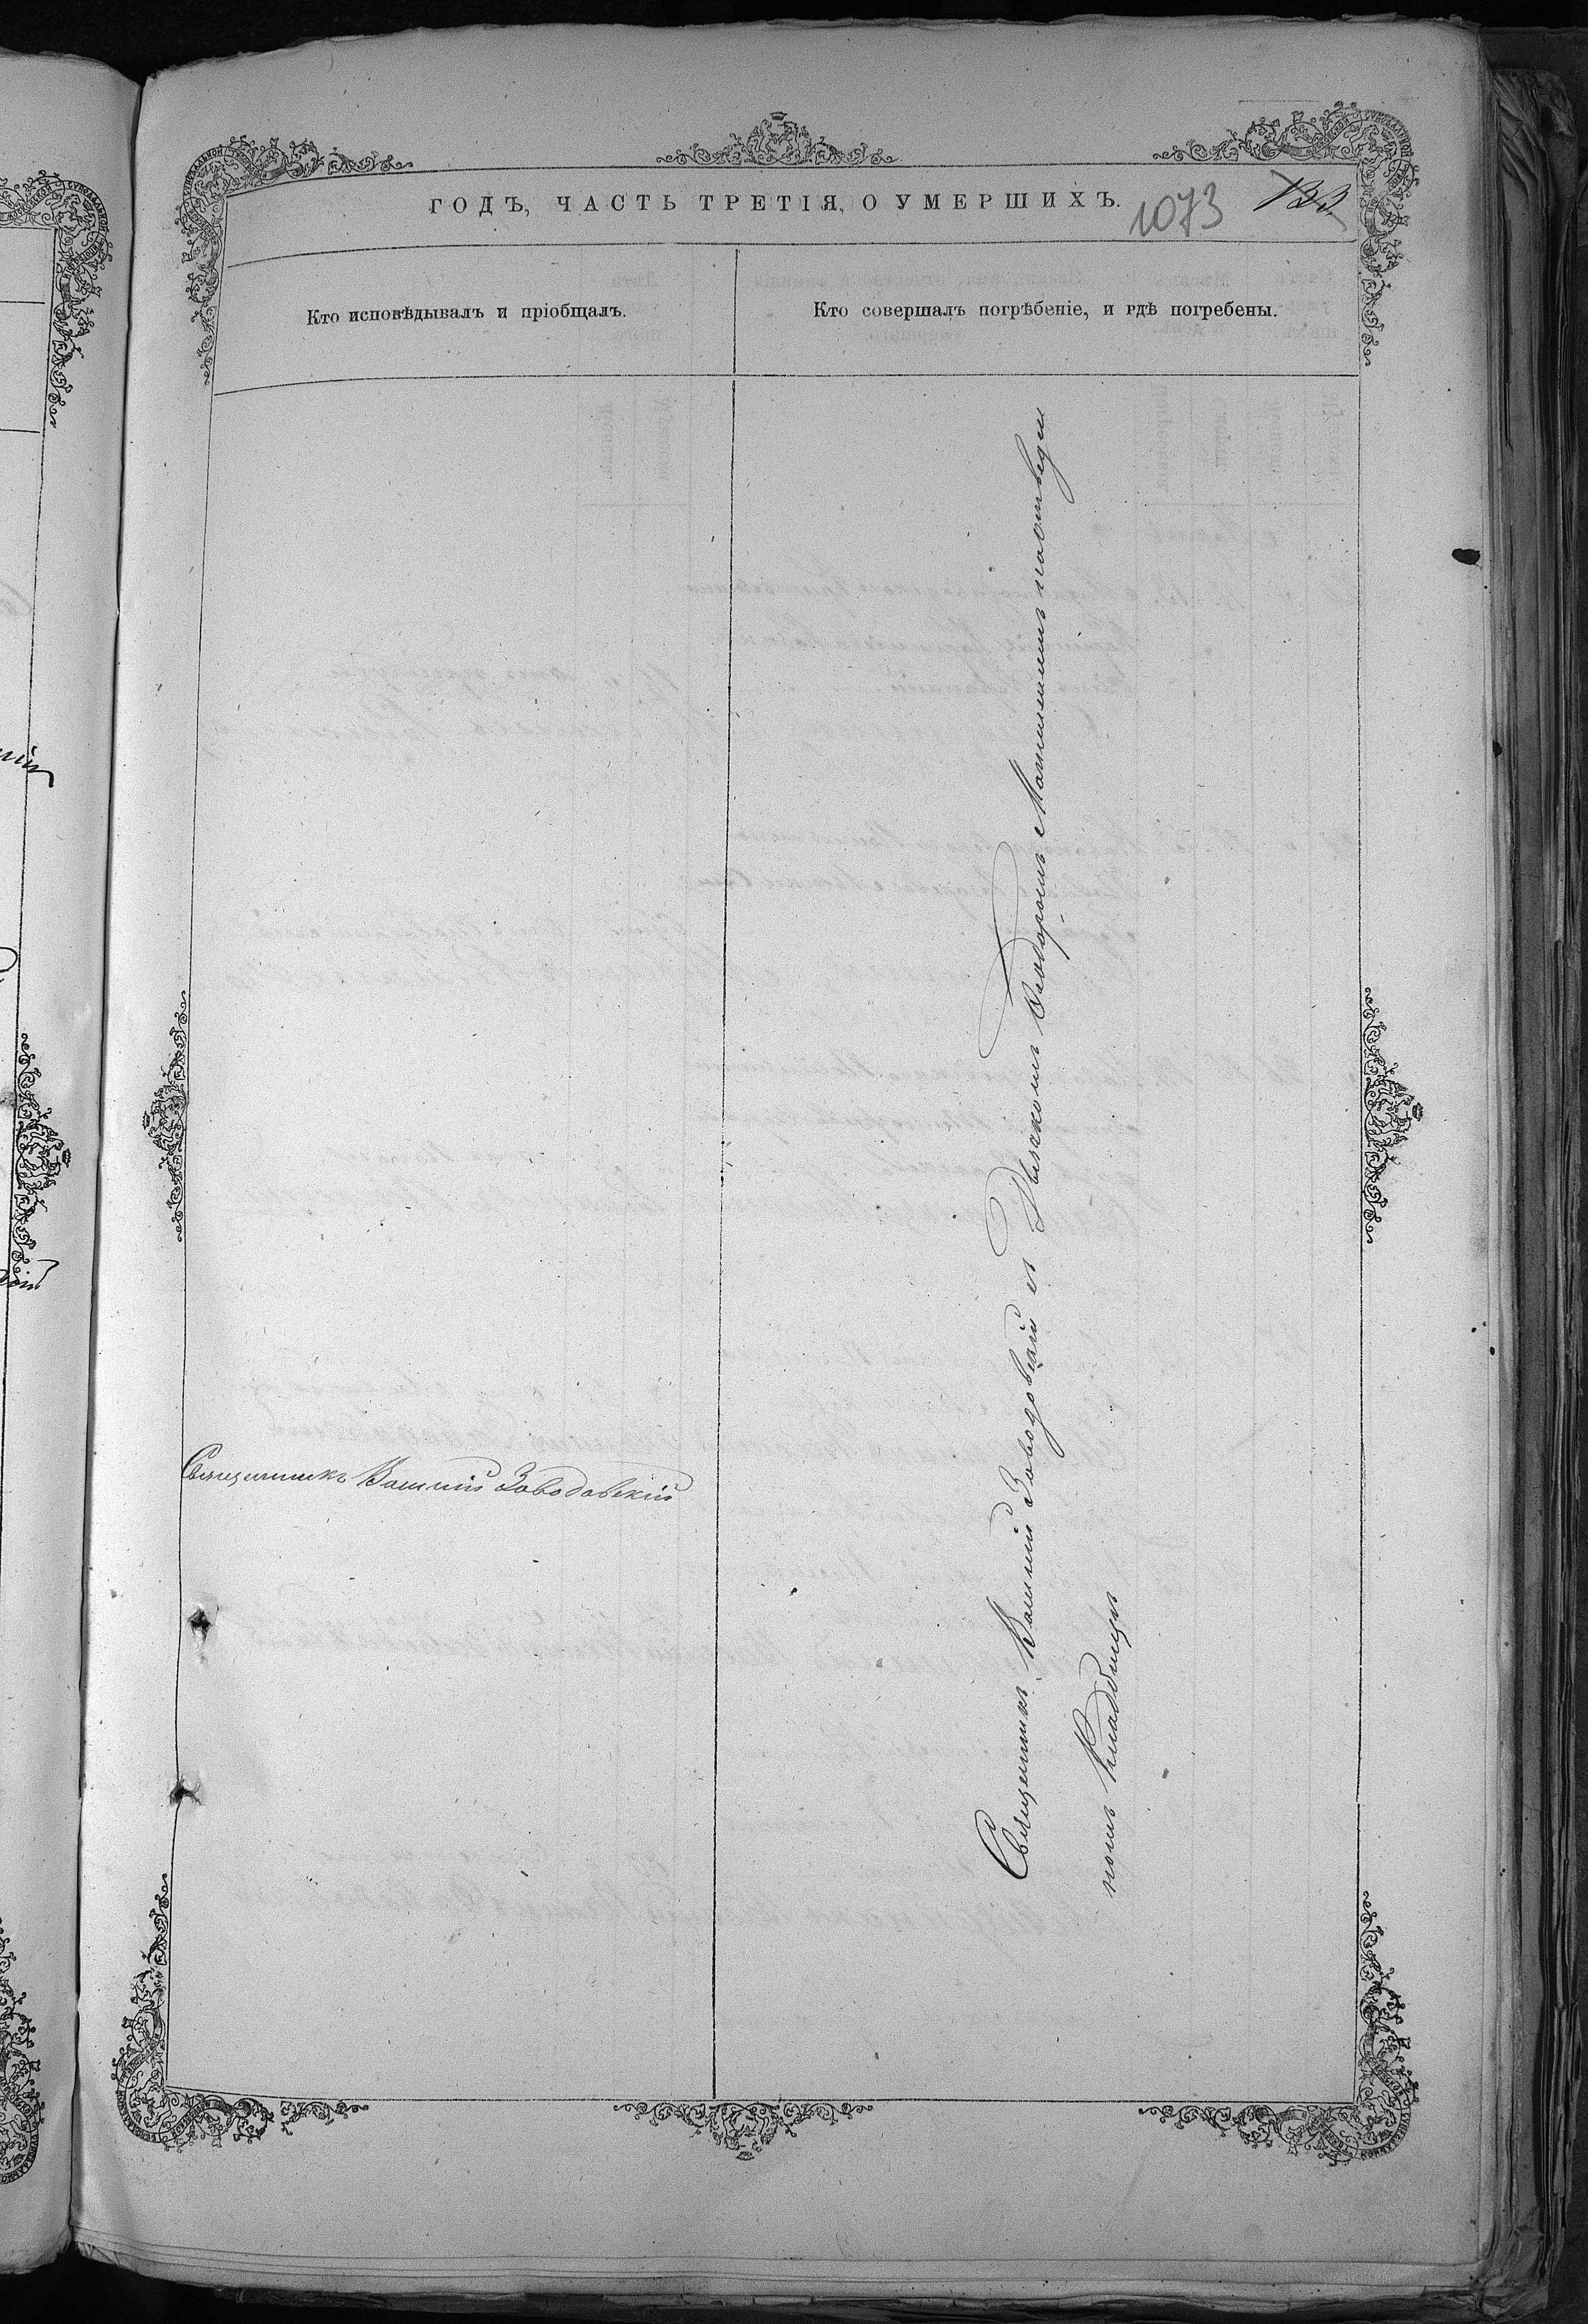 ГОДЪ, ЧАСТЬ ТРЕТІЯ, О УМЕРШИХЪ.
1073
133
Кто исповѣдывалъ и пріобщалъ.
Кто совершалъ погрѣбеніе, и гдѣ погребены.
Священникъ Василій Заводовскій
Священникъ Василій Заводовскій съ Дьячкомъ Ѳеодоромъ на отведен
номъ кладбищѣ